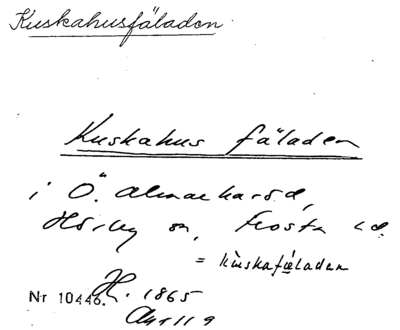 Kuskahusfäladen
Kuskahus fäladen
i Ö. Almaharöd,
Hörby sn, Frosta hd.
= kuskafäladen
Nr 10446. H. 1865